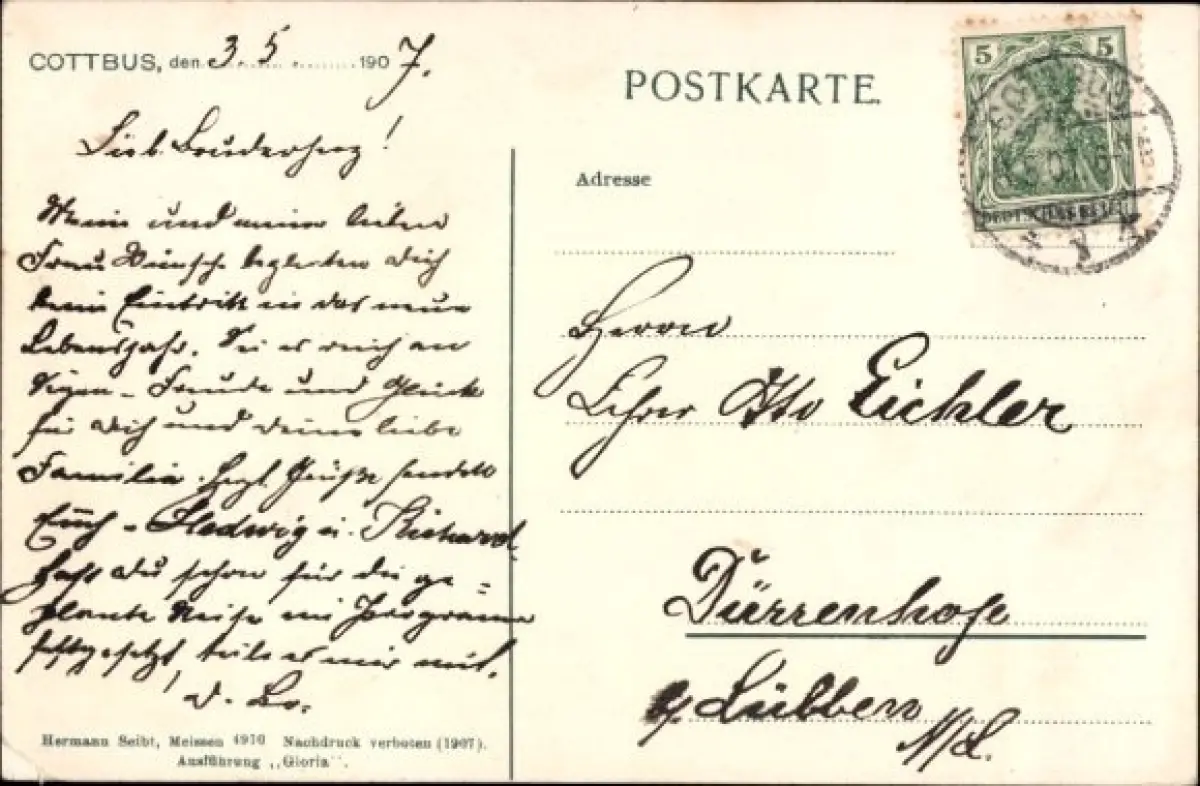 COTTBUS, den 3. 5. 1907.
Lieb. Bruderherz!
Meine und meiner lieben
Frau Wünsche begleiten Dich
beim Eintritt in das neue
Lebensjahr. Sei es reich an
Segen - Freude und Glück
für Dich und Deine liebe
Familie. Herzl. Grüße sendet
Euch - Hedwig u. Richard.
Hast Du schon für die ge=
plante Reise ein Programm
festgesetzt, teile es mir mit.
D. Br.
Hermann Seibt, Meissen 4970 Nachdruck verboten (1907).
Ausführung „Gloria".
POSTKARTE.
5 5
DEUTSCHES REICH
COTTBUS
Adresse
Herrn
Lehrer Otto Eichler
Dürrenhofe
b/ Lübben
N/L.